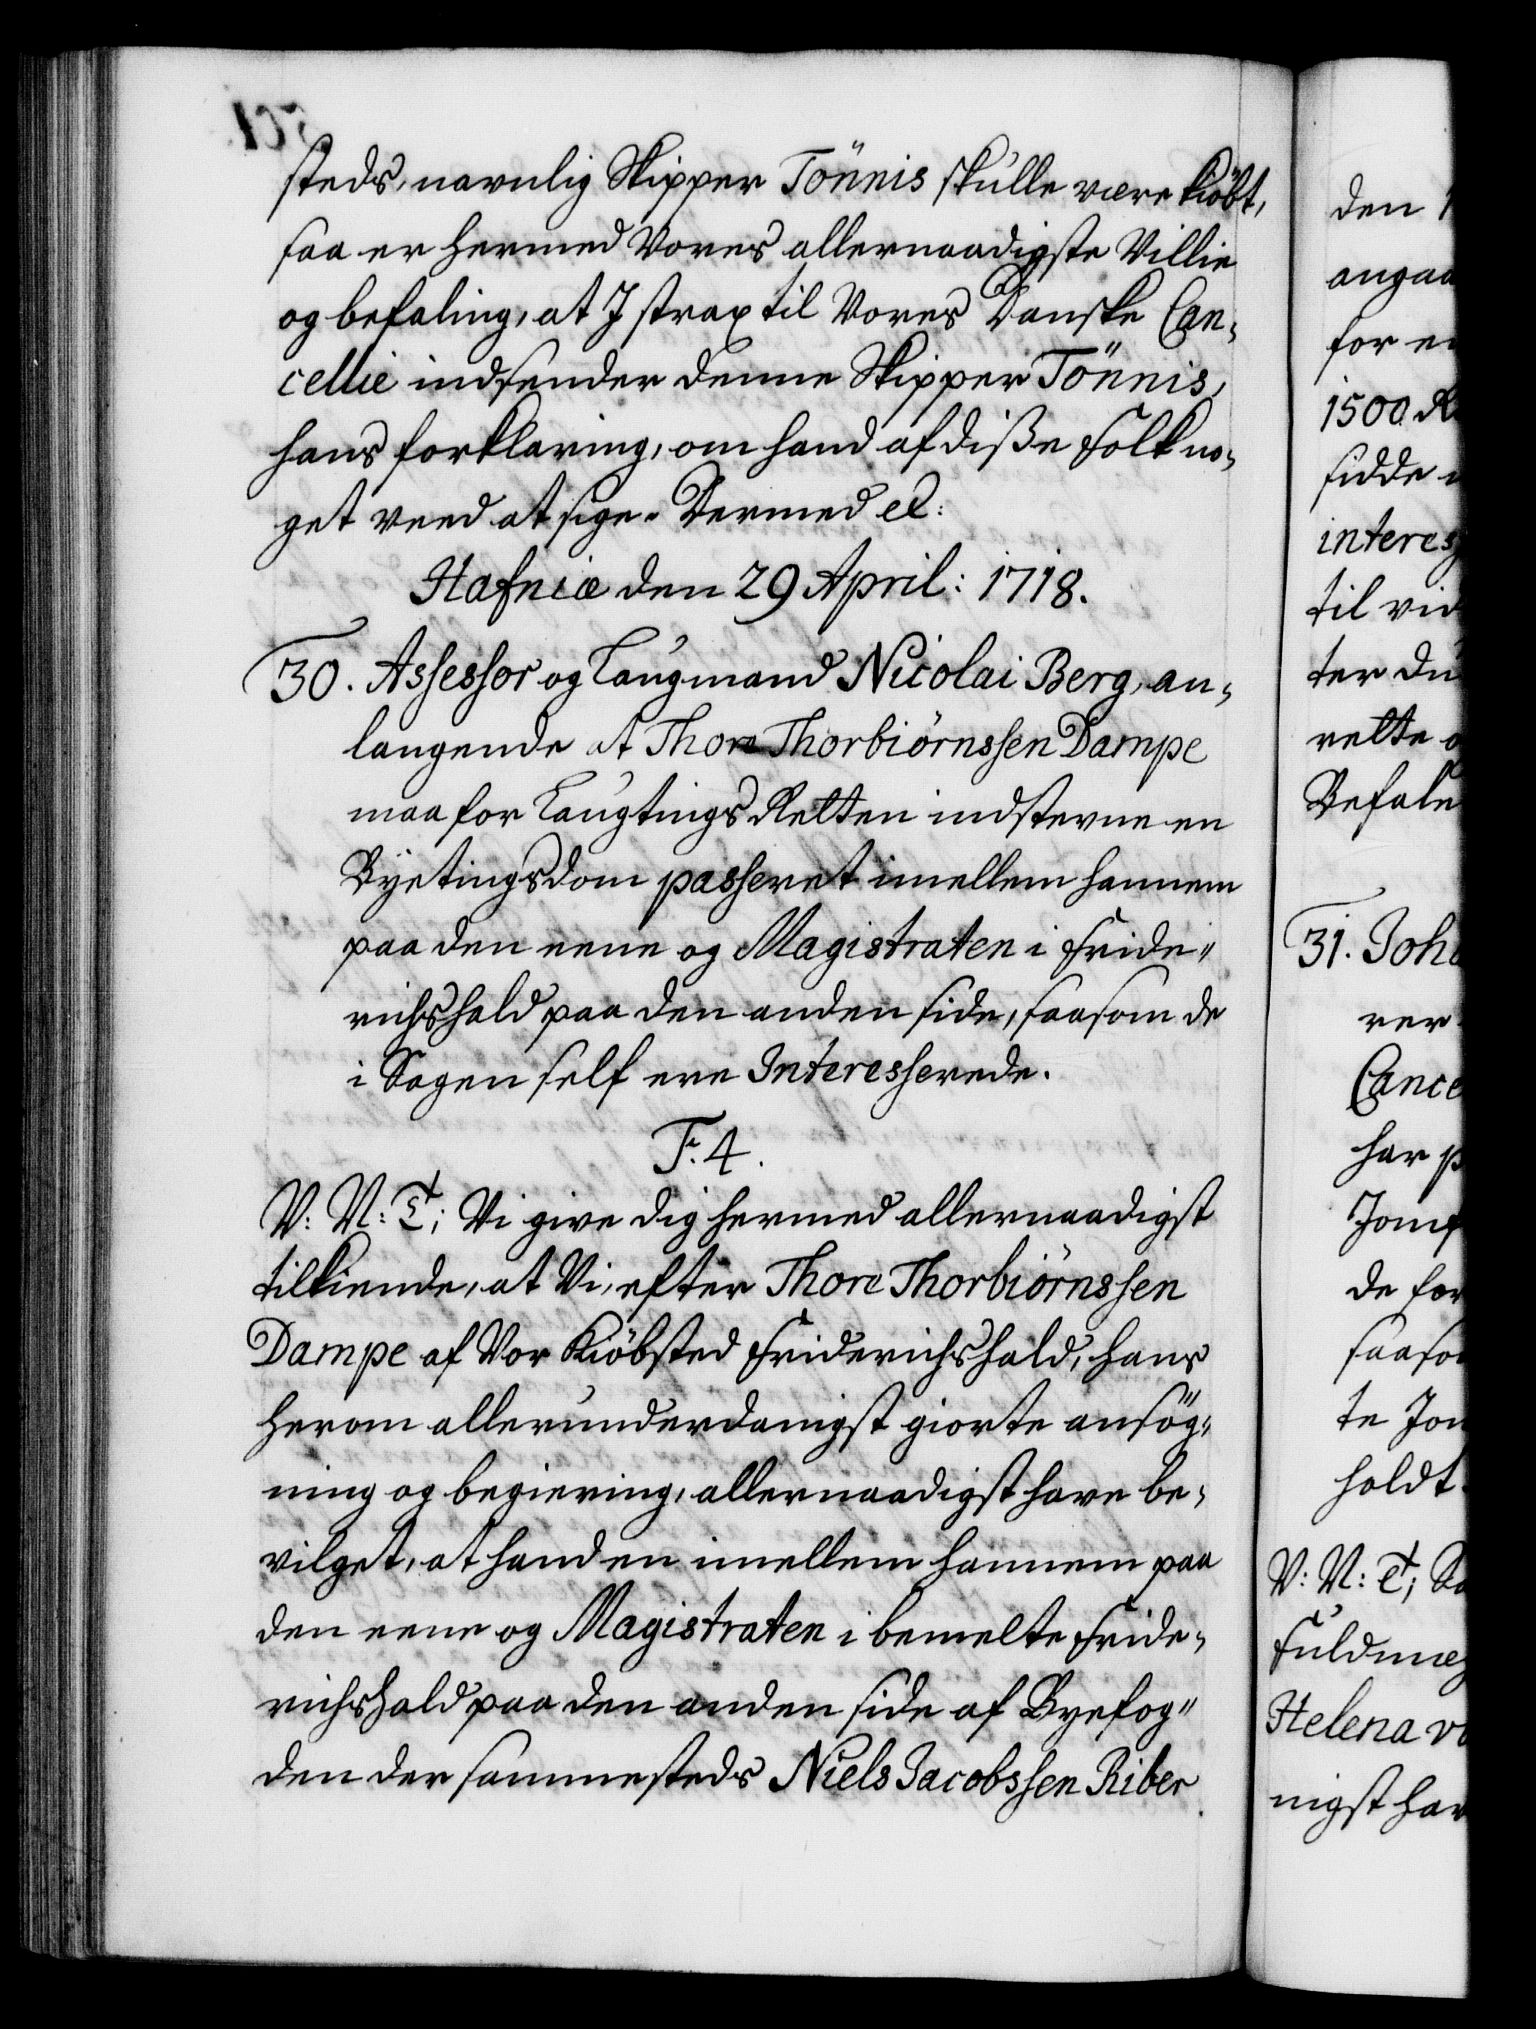 steds, navnlig Skipper Tönnis skulle være kiöbt,
saa er hermed Vores allernaadigste Villie
og befaling, at I strax til Vores Danske Can-
cellie indsender denne Skipper Tönnis,
hans forklaring, om hand af disse folk no-
get veed at sige. Dermed etc:
Hafniæ den 29 April: 1718.
30. Assessor og Laugmand Nicolai Berg, an-
langende at Thore Thorbiörnssen Dampe
maa for Laugtings Retten indstevne en
Byetingsdom passeret imellem hannem
paa den eene og Magistraten i Fride-
richshald paa den anden side, saasom de
i Sagen self ere Interesserede.
F: 4.
V: N: Et; Vi give dig hermed allernaadigst
tilkiende, at Vi, efter Thore Thorbiörnssen
Dampe af Vor Kiöbsted Friderichshald, hans
herom allerunderdanigst giorte ansög-
ning og begiering, allernaadigst have be-
vilget, at hand en imellem hannem paa
den eene og Magistraten i bemelte Fride-
richshald paa den anden side af Byefog-
den der sammesteds Niels Jacobssen Riber
den
angaa
for e
1500 R
sidde
interes
til vid
ter du
rette
Befale
31. Joh
rer
Cance
har p
Jomf
de for
saaso
te Jo
holdt
V: N: Et; Sa
Fuldmæg
Helena v
nigst har